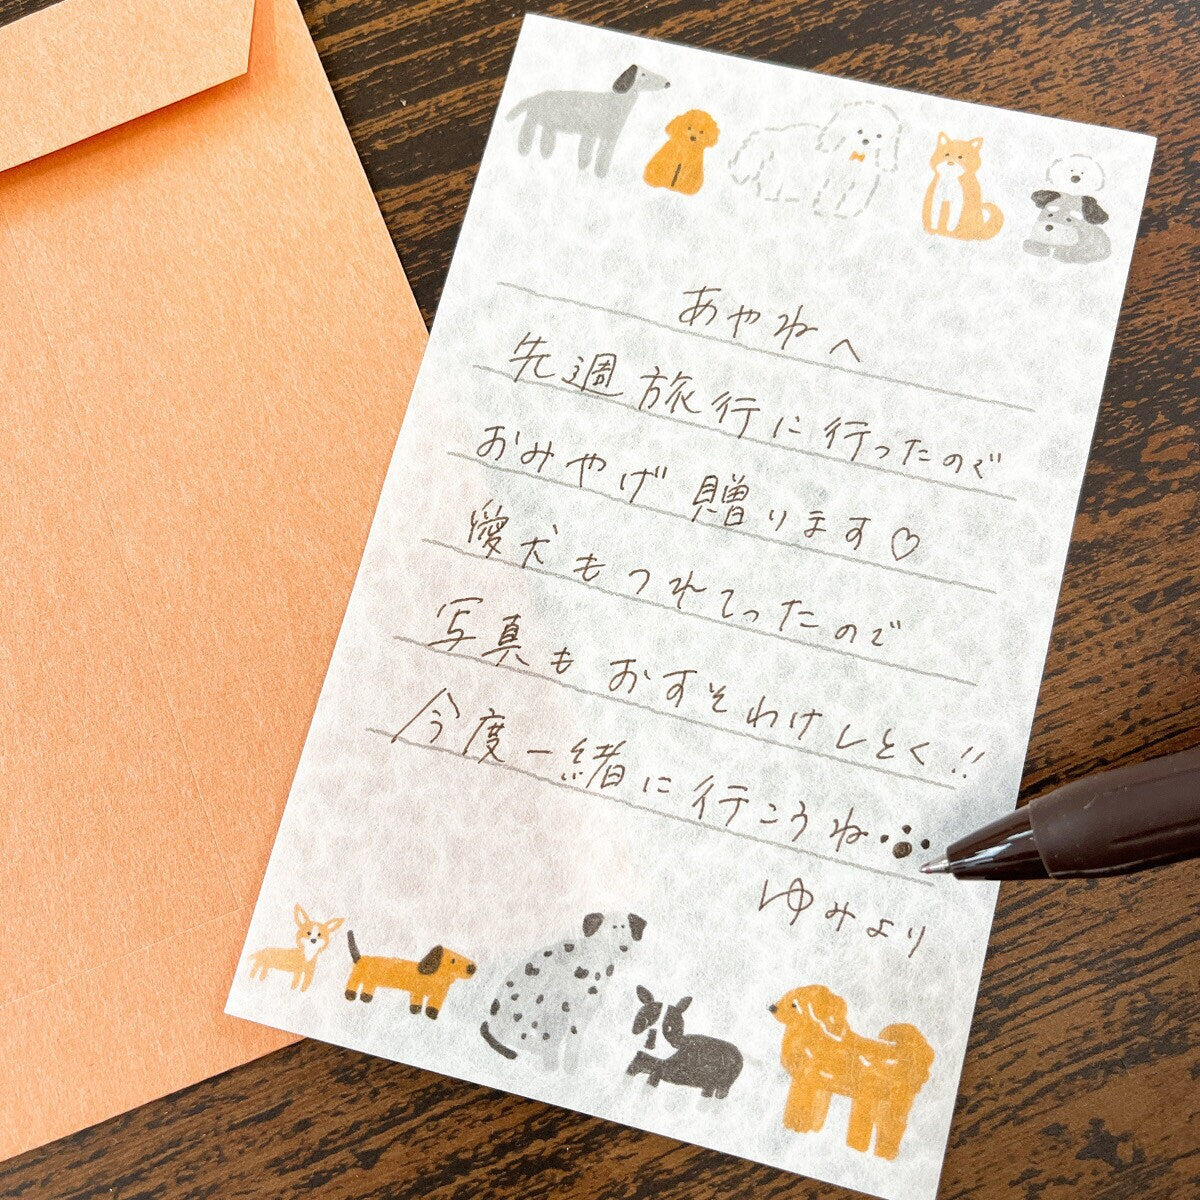 あやねへ
先週旅行に行ったので
おみやげ贈ります♡
愛犬もつれてったので
写真もおすそわけしとく!!
今度一緒に行こうね
ゆみより